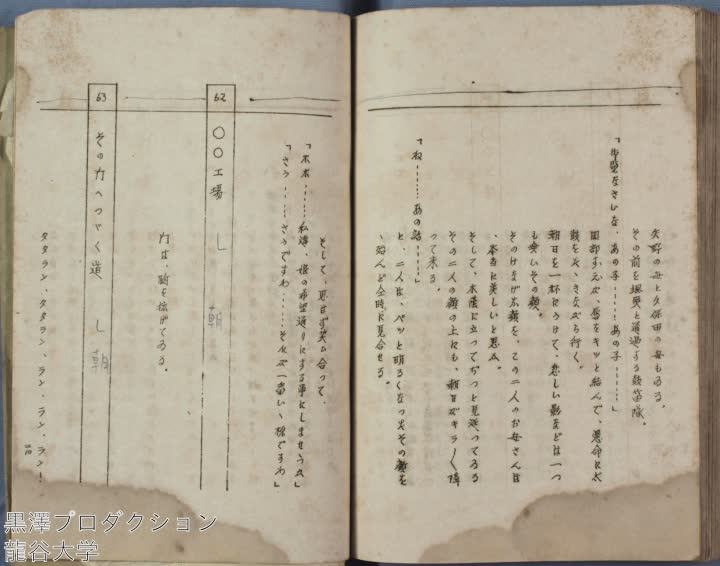 矢野の母と久保田の母もゐる。
その前を堤堤と通過する鼓笛隊。
「御覧なさいな、あの子……あの子……」
田部すえが、唇をキッと結んで、懸命に太
鼓をたゝきながら行く。
朝日を一杯にうけて、悲しい影などは一つ
も無いその顔。
そのけなげな顔を、この二人のお母さんは
、本当に美しいと思ふ。
そして、木陰に立ってぢっと見送ってゐる
その二人の顔の上にも、朝日がキラ〳〵降
って来る。
「ね……あの話……」
と、二人は、パッと明るくなったその顔を
、殆んど同時に見合せる。
そして、思はず笑ひ合って、
「本当……私達、娘の希望通りにする事にしませうよ」
「さう……さうですわ……それが一番いゝ様ですわ」
62
〇〇工場
(朝)
門は、朝を拡げてゐる。
63
その門へつゞく道
(朝)
タタラン、タタラン、ラン、ラン、ラン！
黒澤プロダクション
龍谷大学